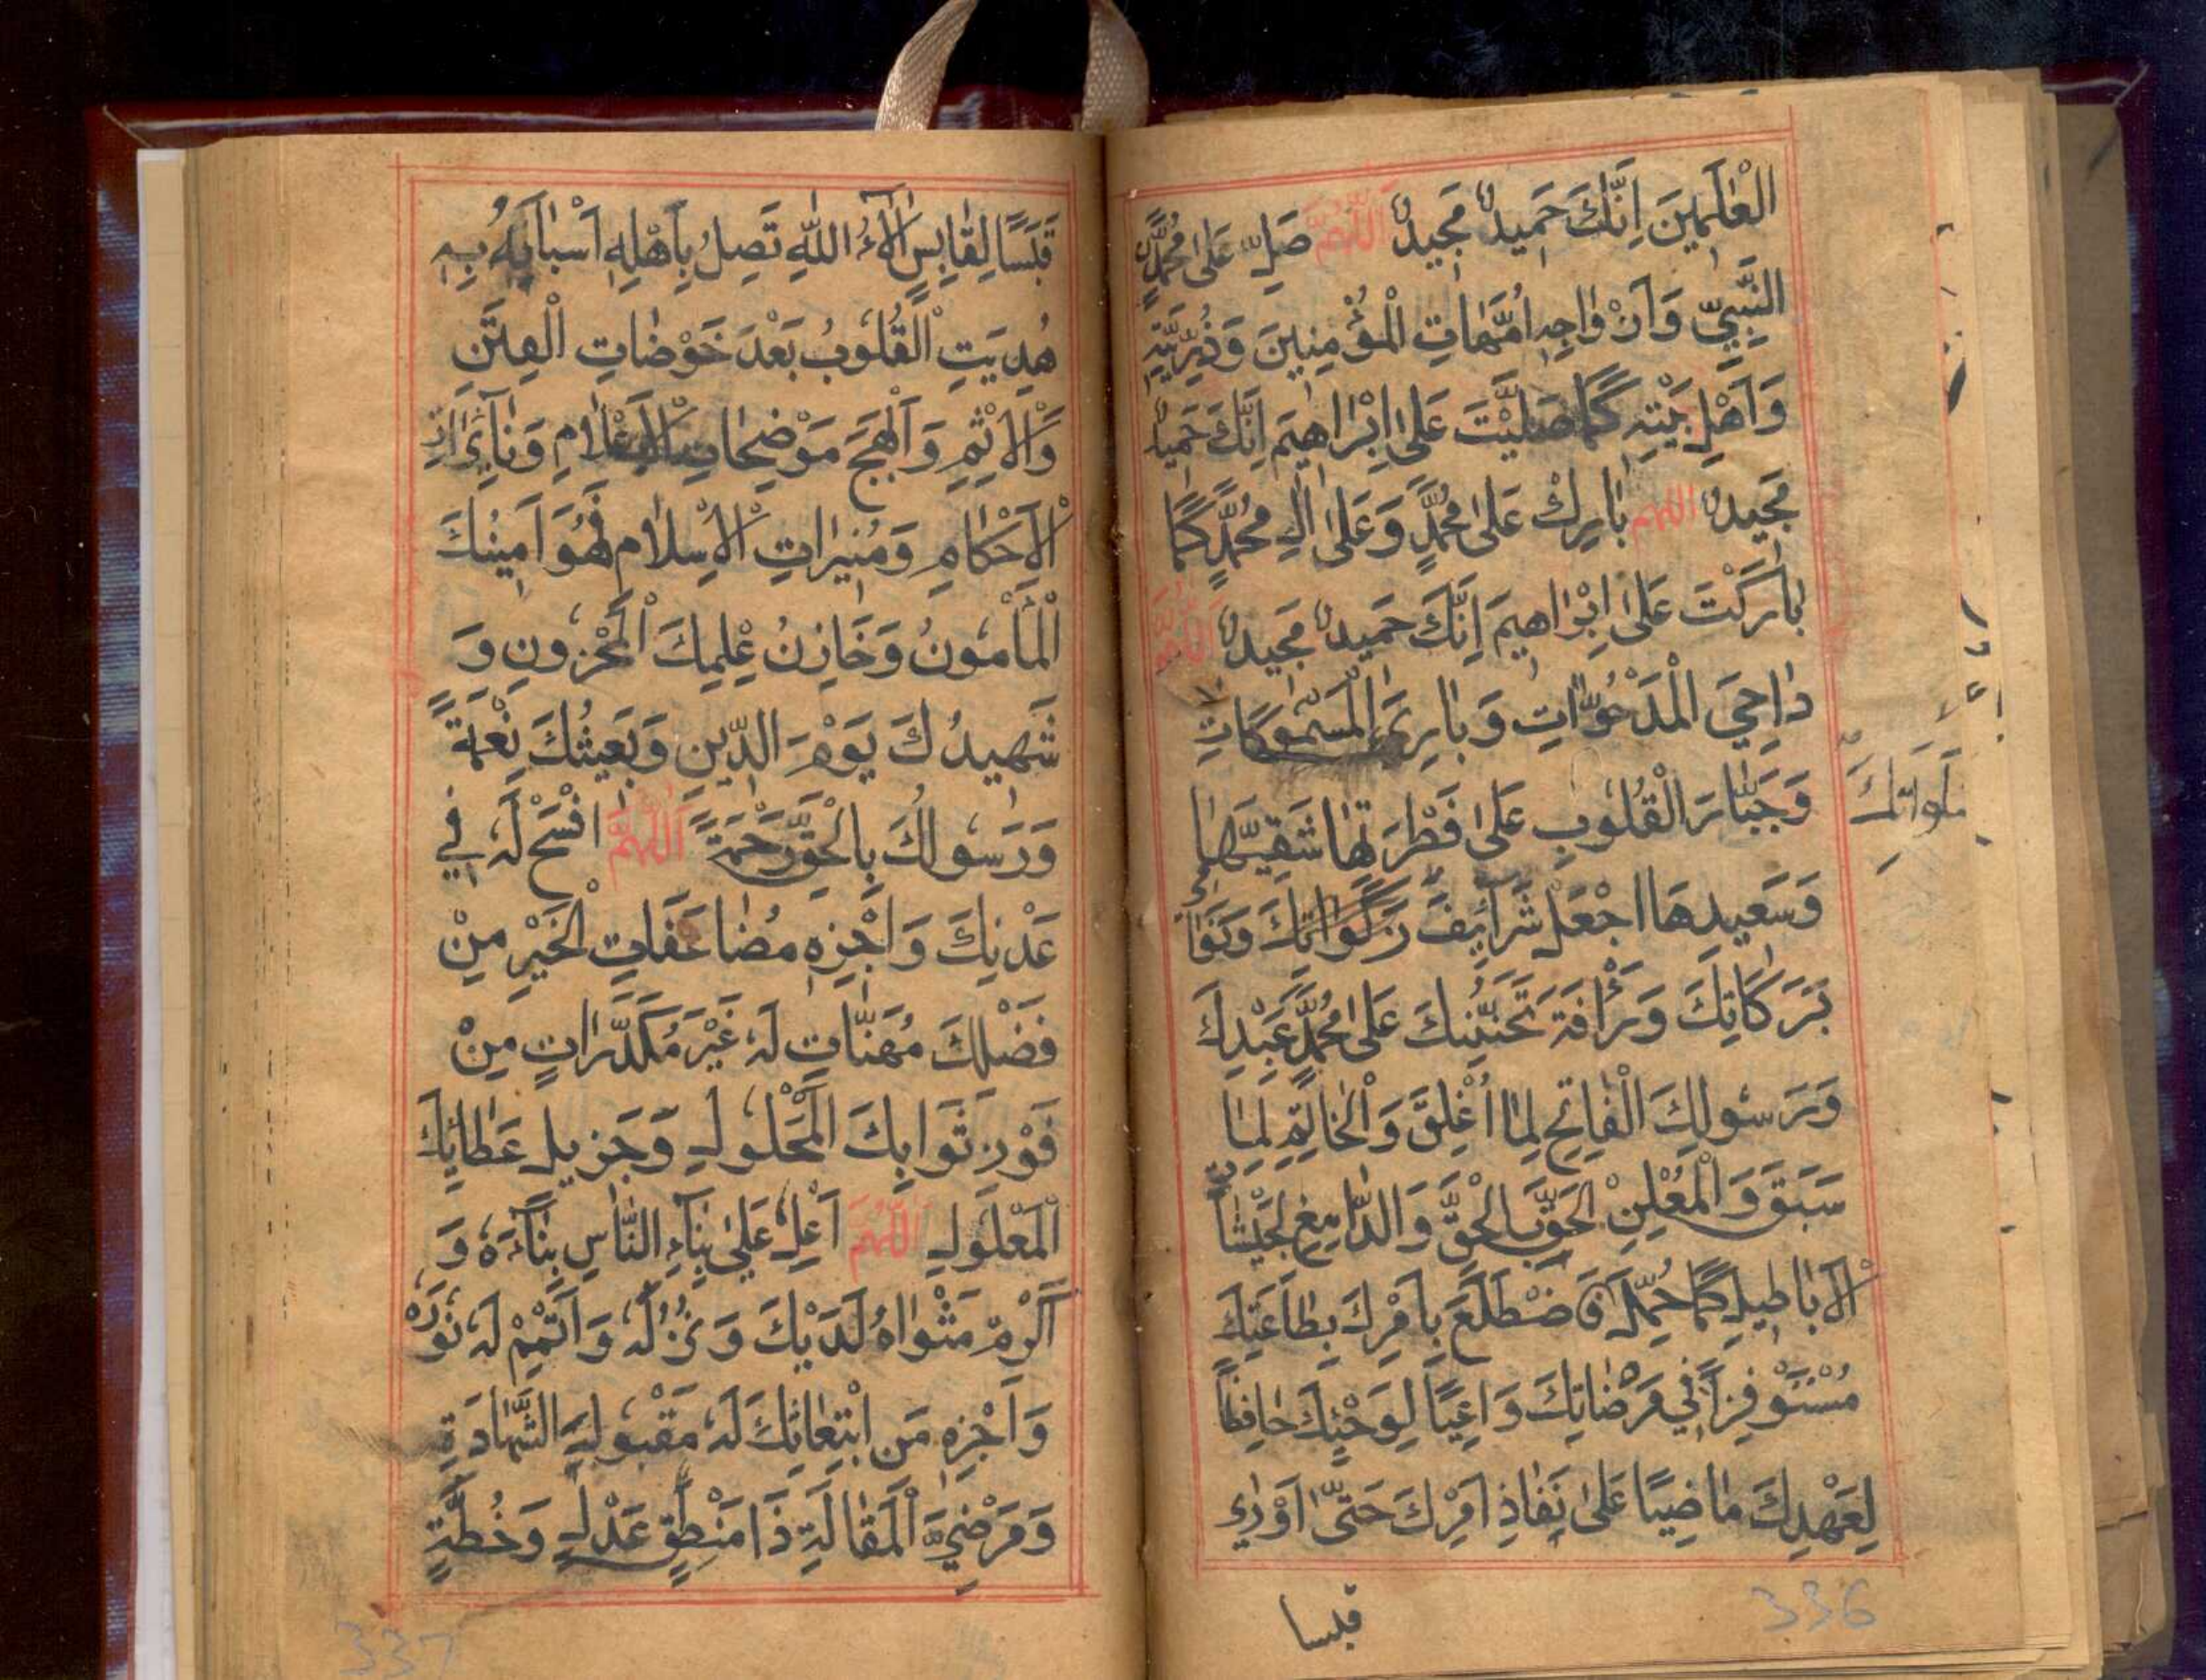 الْعٰالَمِينَ اِنَّكَ حَمِيدٌ مَجِيدٌ اَللّٰهُمَّ صَلِّ عَلىٰ مُحَمَّدٍ
النَّبِيِّ وَاَزْوٰاجِهِ اُمَّهٰاتِ الْمُؤْمِنِينَ وَذُرِّيَّتِهِ
وَاَهْلِ بَيْتِهِ كَمٰا صَلَّيْتَ عَلىٰ اِبْرٰاهِيمَ اِنَّكَ حَمِيدٌ
مَجِيدٌ اللهم بٰارِكْ عَلىٰ مُحَمَّدٍ وَعَلىٰ اٰلِ مُحَمَّدٍ كَمٰا
بٰارَكْتَ عَلىٰ اِبْرٰاهِيمَ اِنَّكَ حَمِيدٌ مَجِيدٌ اَللّٰهُمَّ
دٰاحِيَ الْمَدْحُوّٰاتِ وَبٰارِئَ الْمَسْمُوكٰاتِ
وَجَبّٰارَ الْقُلُوبِ عَلىٰ فَطْرَتِهٰا شَقِيِّهٰا
وَسَعِيدِهَا اجْعَلْ شَرٰائِفَ زَكَوٰاتِكَ وَنَوٰامِيَ
بَرَكَاتِكَ وَرَأْفَةَ تَحَنُّنِكَ عَلىٰ مُحَمَّدٍ عَبْدِكَ
وَرَسُولِكَ الْفٰاتِحِ لِمٰا اُغْلِقَ وَالْخٰاتِمِ لِمٰا
سَبَقَ وَالْمُعْلِنِ الْحَقَّ بِالْحَقِّ وَالدّٰامِغِ لِجَيْشٰاتِ
الْاَبٰاطِيلِ كَمٰا حُمِّلَ فَاضْطَلَعَ بِاَمْرِكَ بِطٰاعَتِكَ
مُسْتَوْفِزًا فِي مَرْضٰاتِكَ وَاعِيًا لِوَحْيِكَ حٰافِظًا
لِعَهْدِكَ مٰاضِيًا عَلىٰ نَفٰاذِ اَمْرِكَ حَتّٰى اَوْرٰى
قبسا
صَلَوَاتِكَ
336
قَبَسًا لِقٰابِسٍ اٰلَاءُ اللّٰهِ تَصِلُ بِاَهْلِهِ اَسْبٰابَهُ بِهِ
هُدِيَتِ الْقُلُوبُ بَعْدَ خَوْضٰاتِ الْفِتَنِ
وَالْاِثْمِ وَاَبْهَجَ مَوْضِحٰاتِ الْاَعْلٰامِ وَنٰائِرٰاتِ
الْاَحْكٰامِ وَمُنِيرٰاتِ الْاِسْلٰامِ فَهُوَ اَمِينُكَ
الْمَأْمُونُ وَخَازِنُ عِلْمِكَ الْمَخْزُونِ وَ
شَهِيدُكَ يَوْمَ الدِّينِ وَبَعِيثُكَ نِعْمَةً
وَرَسُولُكَ بِالْحَقِّ رَحْمَةً اَللّٰهُمَّ افْسَحْ لَهُ فِي
عَدْنِكَ وَاجْزِهِ مُضٰاعَفَاتِ الْخَيْرِ مِنْ
فَضْلِكَ مُهَنَّاتٍ لَهُ غَيْرَ مُكَدَّرٰاتٍ مِنْ
فَوْزِ ثَوَابِكَ الْمَحْلُولِ وَجَزِيلِ عَطٰائِكَ
الْمَعْلُولِ اَللّٰهُمَّ اَعْلِ عَلىٰ بِنَاءِ النَّاسِ بِنَاءَهُ وَ
اَكْرِمْ مَثْوٰاهُ لَدَيْكَ وَنُزُلَهُ وَاَتْمِمْ لَهُ نُورَهُ
وَاجْزِهِ مِنِ ابْتِعٰاثِكَ لَهُ مَقْبُولَ الشَّهٰادَةِ
وَمَرْضِيَّ الْمَقٰالَةِ ذَا مَنْطِقٍ عَدْلٍ وَخُطَّةٍ
337